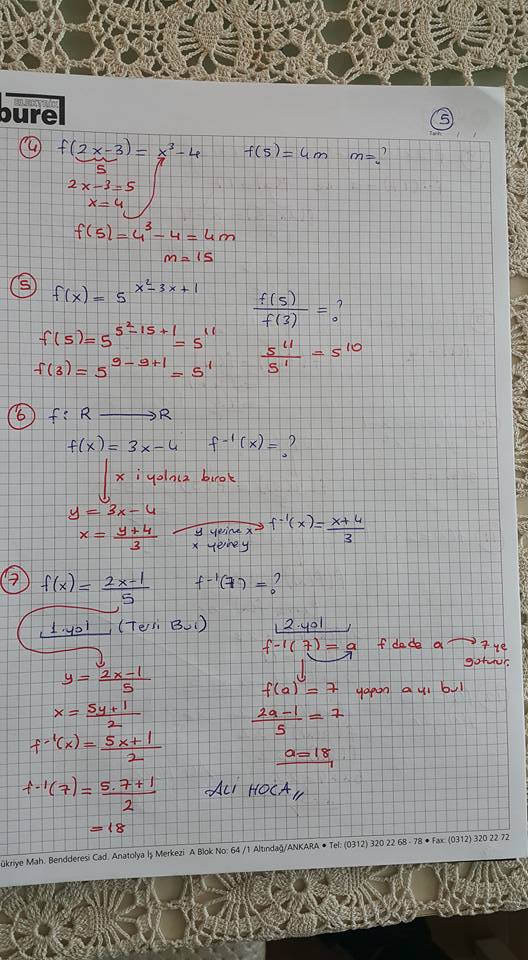 ELEKTRİK
burel
5
Tarih: / /
4 f(2x-3) = x³-4 f(5)=4m m=?
5
2x-3=5
x=4
f(5)=4³-4=4m
m=15
5 f(x) = 5^(x²-3x+1) f(5)/f(3) = ?
f(5)=5^(5²-15+1) = 5^11
f(3)=5^(9-9+1) = 5^1
5^11/5^1 = 5^10
6 f: R → R
f(x)=3x-4 f⁻¹(x)=?
x i yalnız bırak
y=3x-4
x=(y+4)/3 y yerine x
x yerine y f⁻¹(x)=(x+4)/3
7 f(x)=(2x-1)/5 f⁻¹(7)=?
1.yol (Tersi Bul)
y=(2x-1)/5
x=(5y+1)/2
f⁻¹(x)=(5x+1)/2
f⁻¹(7)=(5.7+1)/2
=18
2.yol
f⁻¹(7)=a f de de a → 7 ye
götürür.
f(a)=7 yapan a yı bul
(2a-1)/5=7
a=18
ALİ HOCA,,
ükriye Mah. Bendderesi Cad. Anatolya İş Merkezi A Blok No: 64 /1 Altındağ/ANKARA • Tel: (0312) 320 22 68 - 78 • Fax: (0312) 320 22 72